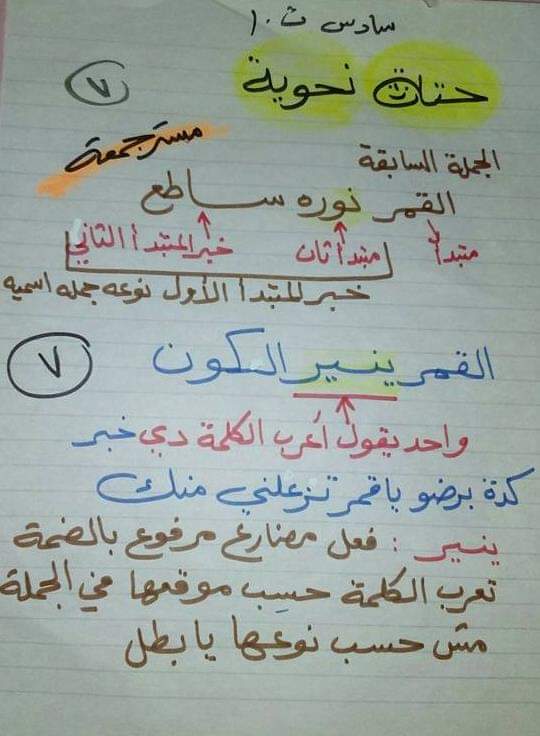 سادس ت١٠
حتات نحوية ٧
مستر جمعة
الجملة السابقة
القمر نوره ساطع
مبتدأ مبتدأ ثان خبر المبتدأ الثاني
خبر للمبتدأ الأول نوعه جملة اسمية
القمر ينير الكون ٧
واحد يقول أعرب الكلمة دي خبر
كدة برضو يا قمر تزعلني منك
ينير : فعل مضارع مرفوع بالضمة
تعرب الكلمة حسب موقعها في الجملة
مش حسب نوعها يا بطل